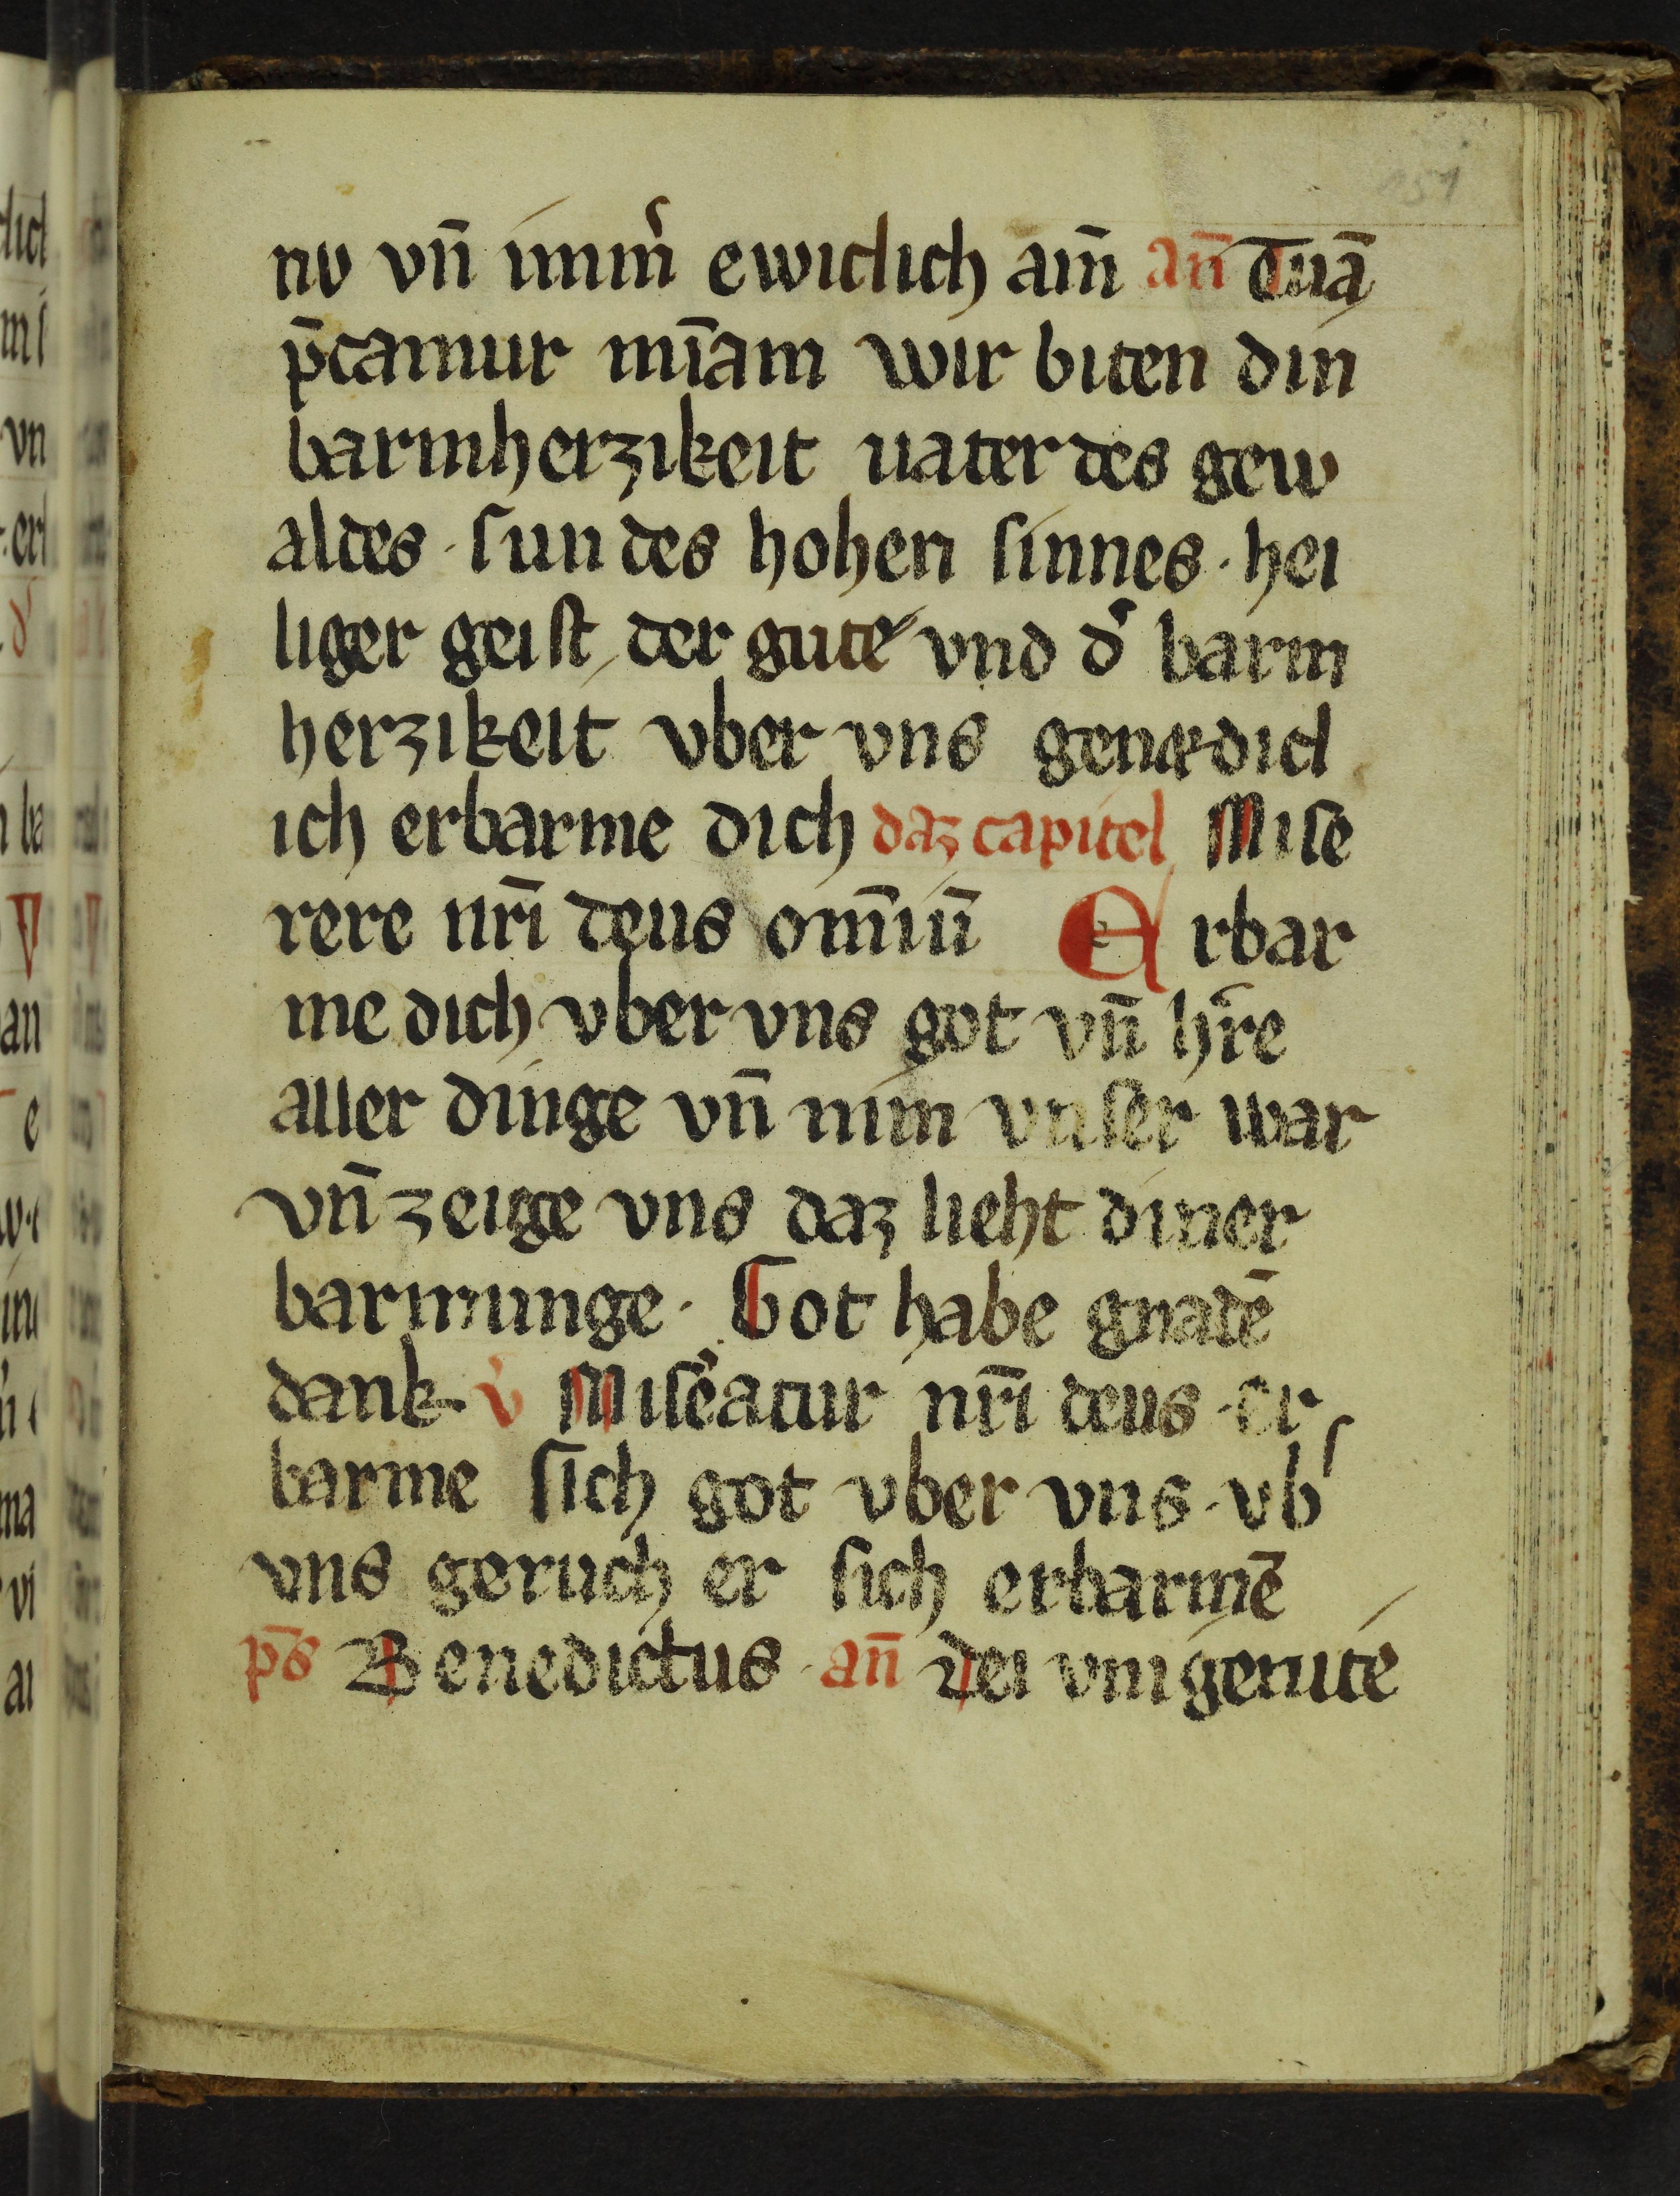 nv vn̄ immˀ ewiclich am̄ an̄ Tuā
p̄camur mīam wir biten din
barmherzikeit uater des gew
aldes · sun des hohen sinnes · hei
liger geist der gute vnd dˀ barm
herzikeit vber vns genædicl
ich erbarme dich daz capitel Mise
rere nr̄i deus om̄iū Erbar
me dich vber vns got vn̄ hˀre
aller dinge vn̄ nim vnser war
vn̄ zeige vns daz lieht diner
barmunge · Got habe gnadē
dank · vˀ Misēatur nr̄i deus · er
barme sich got vber vns · vbˀ
vns geruch er sich erbarmē
ps̄ Benedictus · an̄ Dei vnigenite